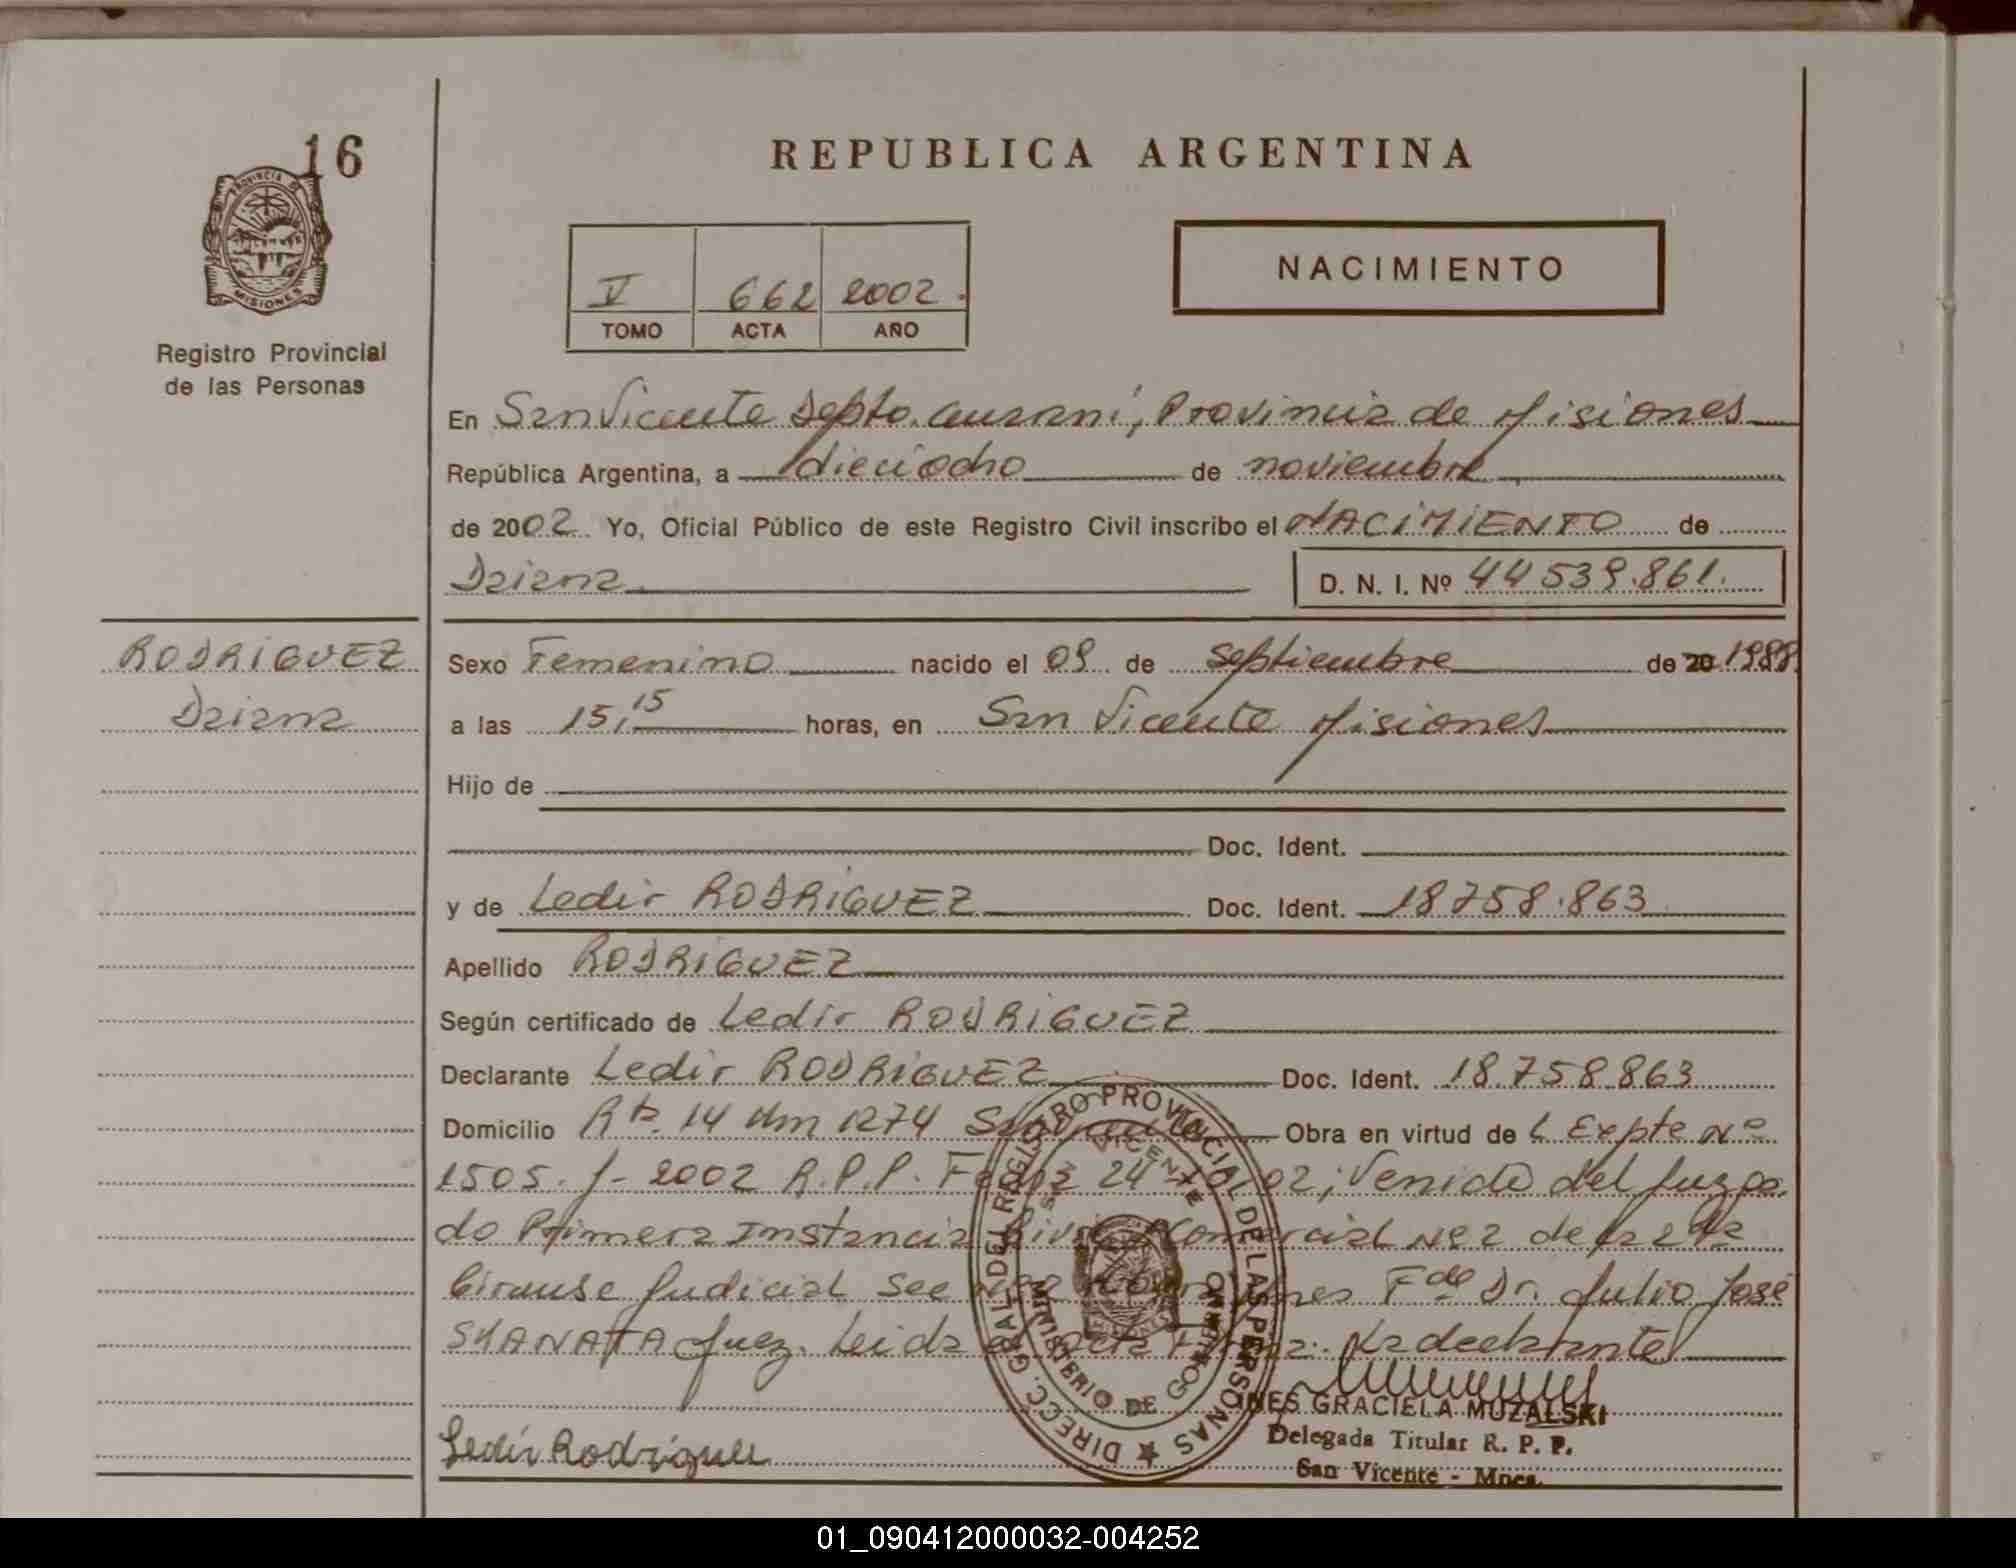 16
PROVINCIA DE
MISIONES
Registro Provincial
de las Personas
REPUBLICA ARGENTINA
V 662 2002.
TOMO ACTA AÑO
NACIMIENTO
En San Vicente Depto. Guarani, Provincia de Misiones
República Argentina, a dieciocho de noviembre
de 2002. Yo, Oficial Público de este Registro Civil inscribo el NACIMIENTO de
Daiana D. N. I. Nº 44539.861.
RODRIGUEZ
Daiana
Sexo Femenino nacido el 09 de septiembre de 20 1988.
a las 15,15 horas, en San Vicente Misiones
Hijo de
Doc. Ident.
y de Ledir RODRIGUEZ Doc. Ident. 18758.863
Apellido RODRIGUEZ
Según certificado de Ledir RODRIGUEZ
Declarante Ledir RODRIGUEZ Doc. Ident. 18.758.863
Domicilio Rta. 14 Km 1274 Obra en virtud de L Expte Nº
1505-J-2002 R.P.P. Fecha 24 02; Venido del Juzga
do Primera Instancia Civil Comercial Nº 2 de la 2da
Circunsc Judicial Sec Fdo Dr. Julio José
SKANATA Juez. Leida Firma: La declarante
Ledir Rodriguez
DIRECC. GRAL. DEL REGISTRO PROVINCIAL DE LAS PERSONAS ★
SAN VICENTE
MINISTERIO DE GOBIERNO
MISIONES
INES GRACIELA MUZALSKI
Delegada Titular R. P. P.
San Vicente - Mnes.
01_090412000032-004252